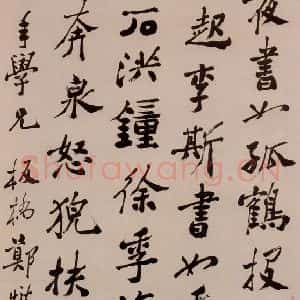 書如孤鶴投
起李斯書如
石洪鐘徐季
奔泉怒猊扶
學兄板橋鄭燮
Shufawang.CN